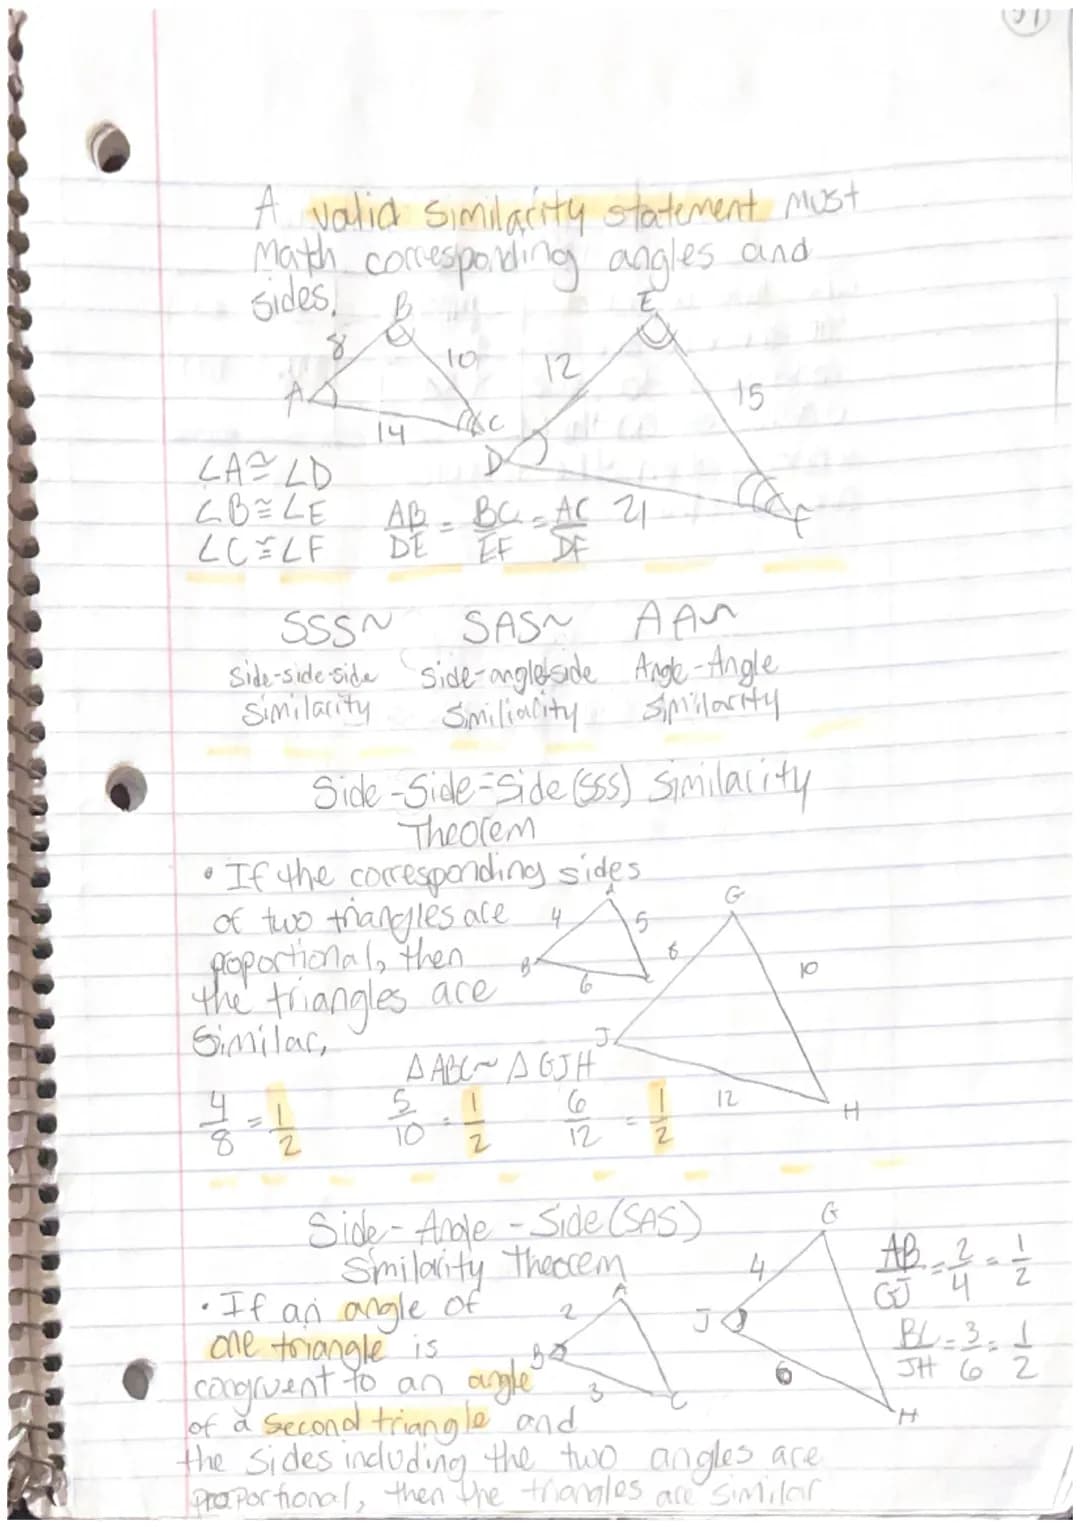 A valid similarity statement must
Math corresponding angles and
sides.
B
E
8
10
12
15
A
C
14
D
21
F
∠A≅∠D
∠B≅∠E
∠C≅∠F
AB/DE = BC/EF = AC/DF
SSS~ SAS~ AA~
Side-side-side Side-angle-side Angle-Angle
Similarity Similiality Similarity
Side-Side-Side (SSS) Similarity
Theorem
• If the corresponding sides
of two triangles are
proportional, then
the triangles are
Similar,
A
G
4
5
8
10
B
6
J
12
H
ΔABC~ΔGJH
4/8 = 1/2 5/10 = 1/2 6/12 = 1/2
Side-Angle-Side (SAS)
Similarity Theorem
• If an angle of
one triangle is
congruent to an angle
of a second triangle and
the sides including the two angles are
proportional, then the triangles are similar
A
2
B
3
C
G
4
J
6
H
AB/GJ = 2/4 = 1/2
BC/JH = 3/6 = 1/2